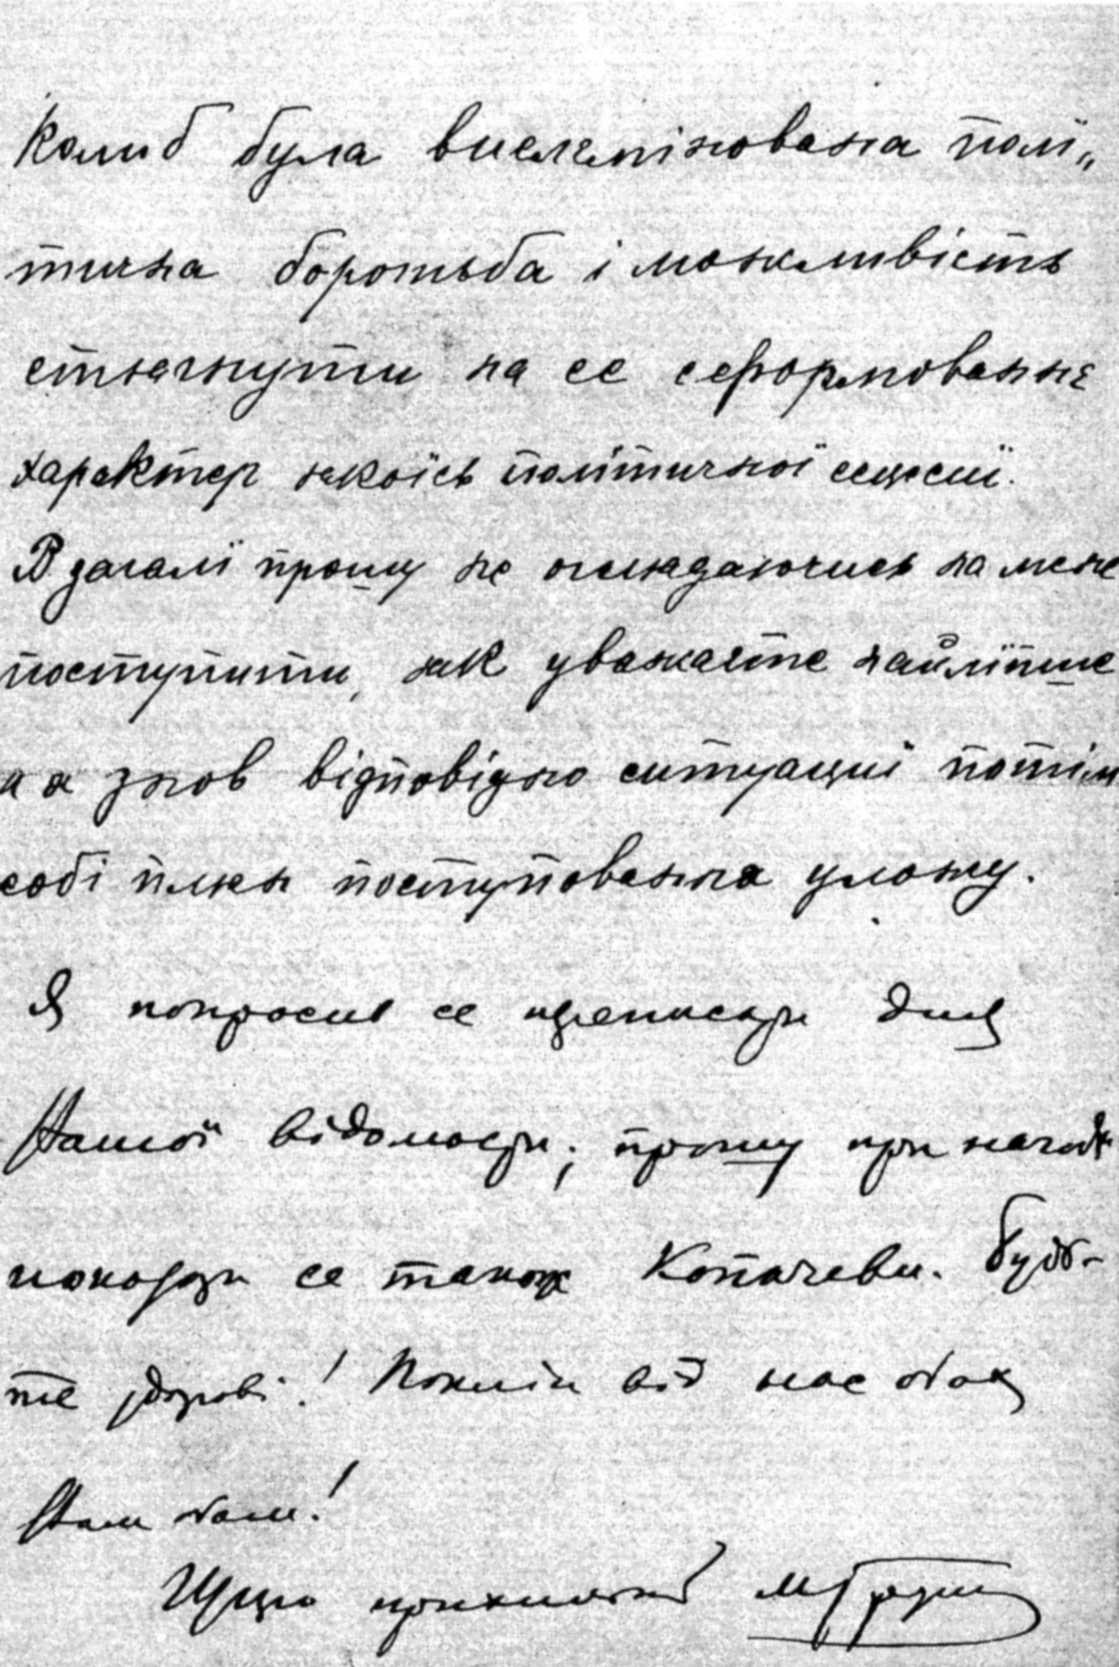 Колиб була виелємінована полї„
тична боротьба і можливість
стягнути на се сформованнє
характер якоїсь полїтичної сецесії.
В загалї прошу не оглядаючись на мене
поступити, як уважаєте найлїпше
а я знов відповідно ситуациї потім
собі плян поступовання уложу.
Я попросив се преписати для
Вашої відомости; прошу при нагоді
показати се також Копачеви. Будь-
те здорові! Поклін від нас обох
Вам обом!
Щиро прихильний МГруше